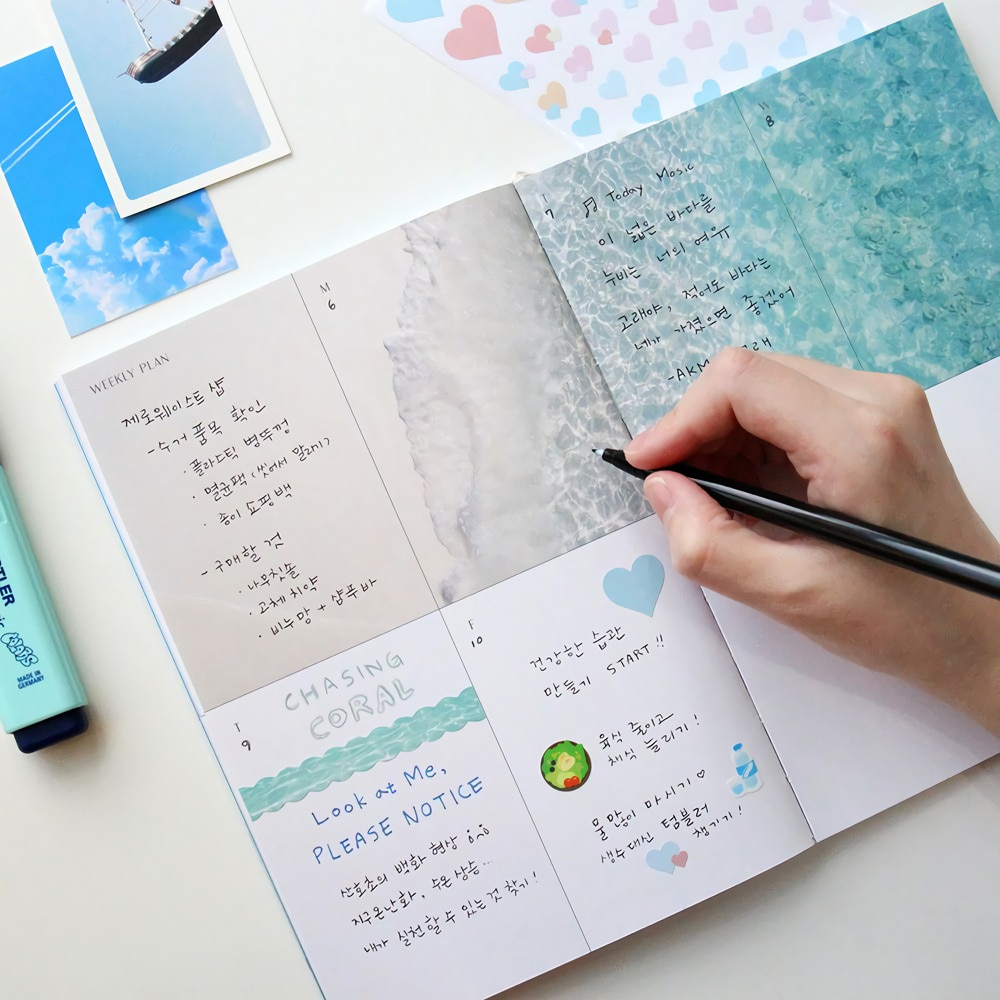 WEEKLY PLAN
제로웨이스트 샵
- 수거 품목 확인
· 플라스틱 병뚜껑
· 멸균팩 (씻어서 말리기)
· 종이 쇼핑백
- 구매할 것
· 나무칫솔
· 고체 치약
· 비누망 + 샴푸바
M
6
T
7
♫ Today Mosic
이 넓은 바다를
누비는 너의 여유
고래야, 적어도 바다는
네가 가졌으면 좋겠어
-AKM
8
T
9
CHASING
CORAL
Look at Me,
PLEASE NOTICE
산호초의 백화 현상
지구온난화, 수온 상승...
내가 실천할 수 있는 것 찾기!
F
10
건강한 습관
만들기 START!!
육식 줄이고
채식 늘리기!
물 많이 마시기 ♡
생수 대신 텀블러
챙기기!
MADE IN
GERMANY